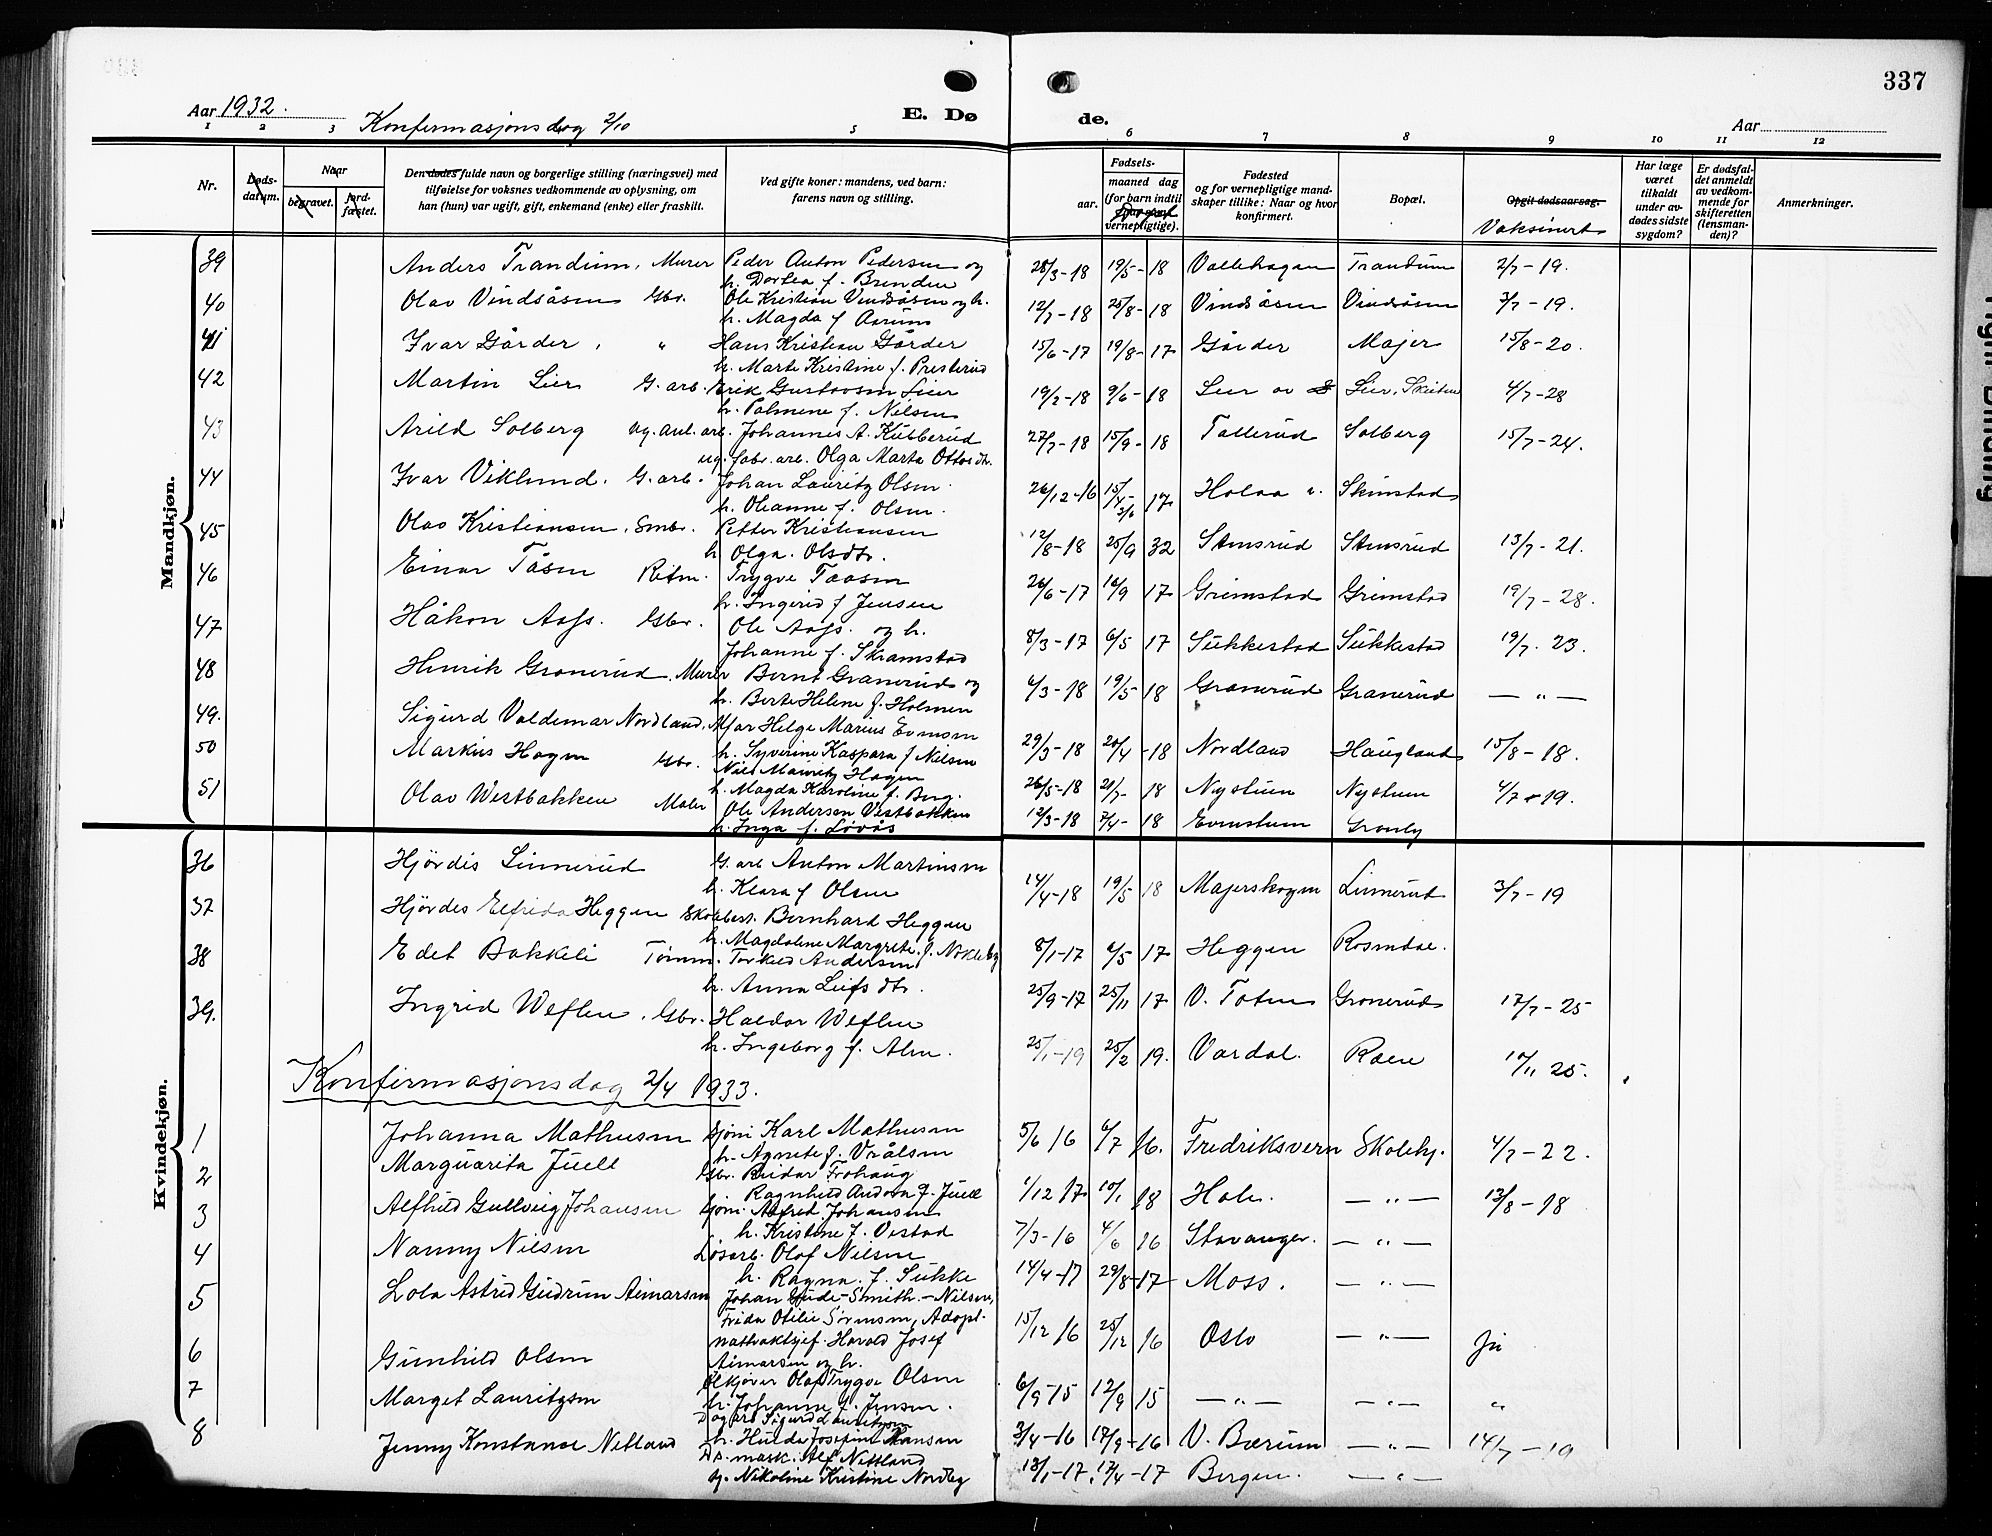 337
Aar 1932.
Konfirmasjonsdag 2/10
E. Dø de.
Aar
1 2 3 5 6 7 8 9 10 11 12
Nr.
Døds-datum.
Naar
begravet.
jord-fæstet.
Den dødes fulde navn og borgerlige stilling (næringsvei) med
tilføielse for voksnes vedkommende av oplysning, om
han (hun) var ugift, gift, enkemand (enke) eller fraskilt.
Ved gifte koner: mandens, ved barn:
farens navn og stilling.
Fødsels-
aar.
maaned dag
(for barn indtil
vernepligtige).
Fødested
og for vernepligtige mand-
skaper tillike: Naar og hvor
konfirmert.
Bopæl.
Opgit dødsaarsag.
Vaksinert
Har læge
været
tilkaldt
under av-
dødes sidste
sygdom?
Er dødsfal-
det anmeldt
av vedkom-
mende for
skifteretten
(lensman-
den)?
Anmerkninger.
Mandkjøn.
39 Anders Trandum, Murer Peder Anton Pedersen og
h. Dortea f. Brenden 28/3-18 19/5-18 Vollehagen Trandum 2/7-19.
40 Olav Vindsåsen Gbr. Ole Kristian Vindsåsen og h.
h. Magda f. Aarum 12/7-18 25/8-18 Vindsåsen Vindsåsen 3/7-19.
41 Ivar Gårder, " Hans Kristian Gårder
h. Marte Kristine f. Presterud 15/6-17 19/8-17 Gårder Majer 15/8-20.
42 Martin Lier G. arb. Erik Gustavsen Lier
h. Palmene f. Nilsen 19/2-18 9/6-18 Lier av Lier, 4/7-28
43 Arild Solberg ug. anl. arb. Johannes A. Kubberud
ug. fabr. arb. Olga Marta Ottosdtr. 27/7-18 15/9-18 Tollerud Solberg 15/7-24.
44 Ivar Viklund. G. arb. Johan Lauritz Olsen.
h. Oleanne f. Olsen. 26/12-16 15/4- 3/6 17 Holaa Skinstad
45 Olav Kristiansen, Smbr. Petter Kristiansen
h Olga. Olsdtr. 12/8-18 25/9 32 Stensrud Stensrud 13/7-21.
46 Einar Tåsen Ritm. Trygve Taasen
h. Ingerid f Jensen 26/6-17 16/9 17 Grimstad Grimstad 19/7-28.
47 Håkon Aass. Gbr. Ole Aass. og h.
Johanne f. Skramstad 8/3-17 6/5 17 Sukkestad Sukkestad 19/7. 23.
48 Henrik Granerud, Murer Bernt Granerud og
h. Berte Helene f. Holmen 6/3-18 19/5 18 Granerud Granerud — " —
49. Sigurd Valdemar Nordland, Helge Marius Evensen
h. Syverine Kaspara f Nielsen 29/3-18 20/4-18 Nordland Haugland 15/8-18.
50 Markus Hagen Gbr. Nils Mauritz Hagen
h. Magda Karoline f. Berg. 26/5-18 21/7- 18 Nystuen Nystuen 4/7-19.
51 Olav Westbakken Maler Ole Andersen Vestbakken
h. Inga f. Løvås 12/3-18 7/4- 18 Evenstuen Granly
Kvindekjøn.
36 Hjördis Linnerud G. arb Anton Martinsen
h. Klara f Olsen 14/4-18 19/5 18 Majerskogen Linnerud 3/7-19
37 Hjördes Elfrida Heggen Skobest. Bernhard Heggen
h. Magdalene Margrete f. Nokleby 8/1-17 6/5 17 Heggen Rosendal.
38 Edet Bakkeli Tømm. Torkild Andersen
h. Anna Leifsdtr. 25/9-17 25/11 17 V. Toten Granerud 17/7-25
39. Ingrid Weflen, Gbr. Haldor Weflen
h. Ingeborg f. Alm. 25/1-19 25/2 19. Vardal. Raen 10/11 25.
Konfirmasjonsdag 2/4 1933.
1 Johanna Mathusen Sjøm Karl Mathusen
h. Agnete f. Vrålsen 5/6 16 6/7 16. Fredriksvern Skolehj. 4/7-22.
2 Marguarita Juell Gbr. Reidar Frohaug
Ragnhild Andora f. Juell 1/12 17 10/1 18 Hole. — " — 13/8-18
3 Alfhild Gullveig Johansen Sjøm. Alfred Johansen
h. Kristine f. Vestad 7/3-16 4/6 16 Stavanger. — " —
4 Nanny Nilsen Løsarb. Olof Nilsen
h. Ragna. f. Sukke 14/4-17 29/8-17 Moss. — " —
5 Lola Astrid Gudrun Aimarsen Johan Gude-Smith.-Nilsen,
Frida Otilie Sørensen, Adopt.
nattvaktsjef. Harald Josef
Aimarsen og h. 15/12 16 25/12 16 Oslo — " — Ja
6 Gunhild Olsen Ølkjører Olaf Trygve Olsen
h. Johanne f. Jensen. 6/9-15 12/9 15 — " — — " — "
7 Marget Lauritzsen Dagarb Sigurd Lauritzsen
h. Hulda Josefine Hansen 3/4-16 17/9-16 V. Bærum — " — 14/7-19
8 Jenny Konstanse Netland Alf Nettland
g. Nikoline Kristine Nordby 13/1-17. 17/4-17 Bergen. — " —